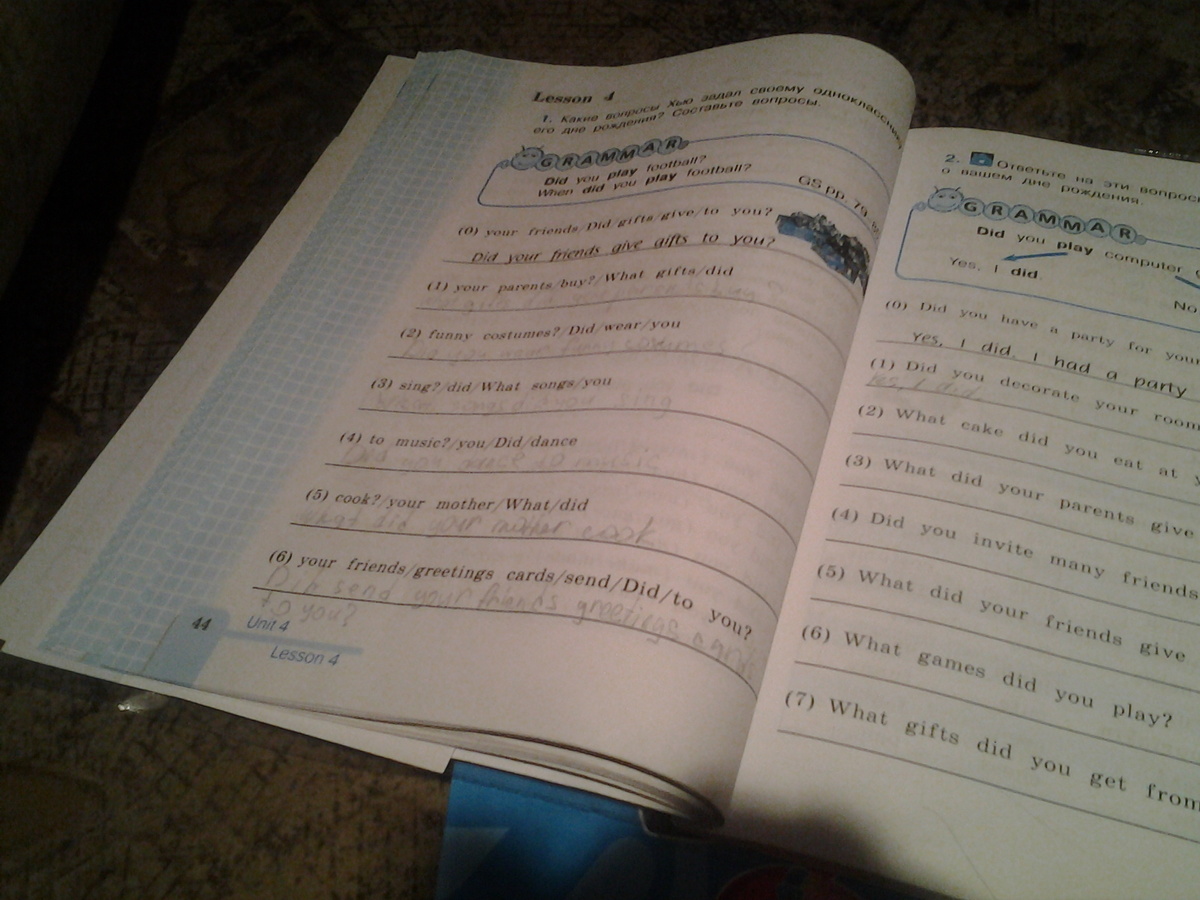 Lesson 4
1. Какие вопросы Хью задал своему
его дне рождения? Составьте вопросы.
GRAMMAR
Did you play football?
When did you play football?
GS pp. 79,
(0) your friends/Did/gifts/give/to you?
Did your friends give gifts to you?
(1) your parents/buy?/What gifts/did
(2) funny costumes?/Did/wear/you
Did you wear funny costumes
(3) sing?/did/What songs/you
songs did you sing
(4) to music?/you/Did/dance
Did you to music
(5) cook?/your mother/What/did
What did your mother cook
(6) your friends/greetings cards/send/Did/to you?
Did send your friends greetings cards
to you?
44
Unit 4
Lesson 4
2. Ответьте на эти
о вашем дне рождения.
GRAMMAR
Did you play computer
Yes, I did.
No
(0) Did you have a party for your
Yes, I did. I had a party
(1) Did you decorate your room
Yes, I did.
(2) What cake did you eat at
(3) What did your parents give
(4) Did you invite many friends
(5) What did your friends give
(6) What games did you play?
(7) What gifts did you get from